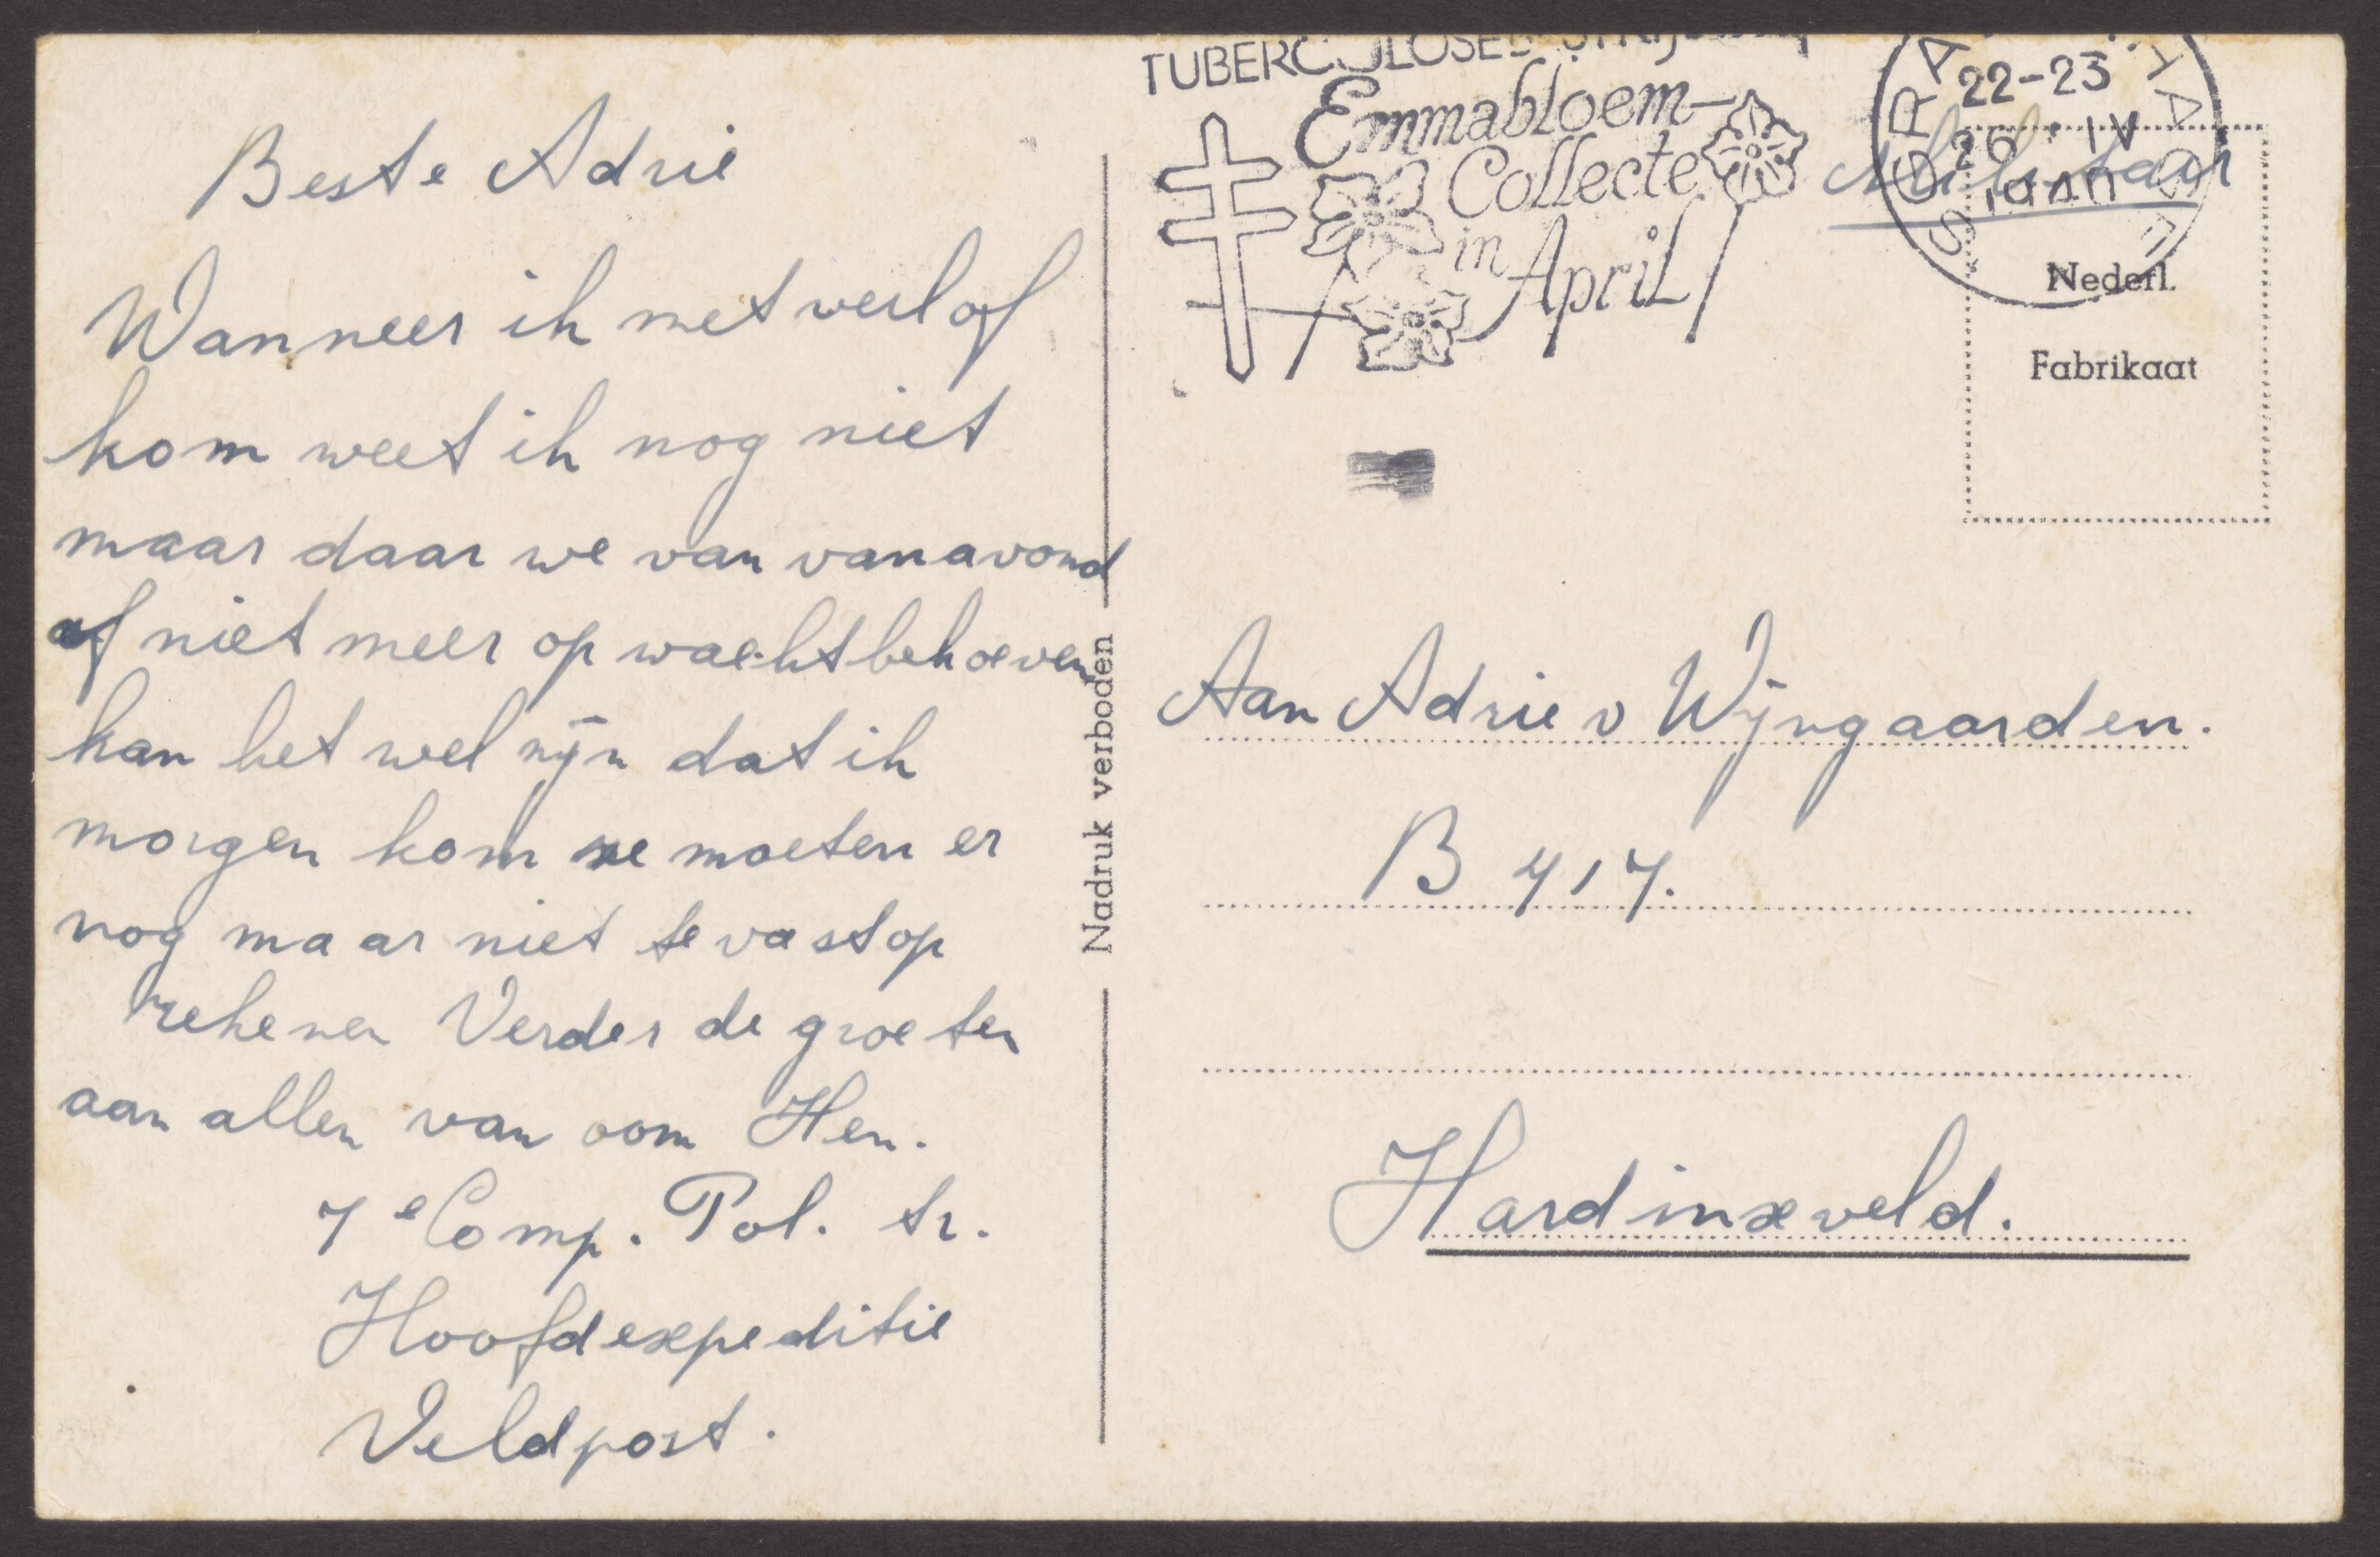 Beste Adrie
Wanneer ik met verlof
kom weet ik nog niet
maar daar we van vanavond
af niet meer op wacht behoeven
kan het wel zijn dat ik
morgen kom ze moeten er
nog maar niet te vast op
rekenen Verder de groeten
aan allen van oom Hen.
7e Comp. Pol. tr.
Hoofdexpeditie
Veldpost.
Nadruk verboden
TUBERCULOSEBESTRIJDING
Emmabloem-
Collecte
in April
'S GRAVENHAGE
22-23
26 IV
1940
Militair
Nederl.
Fabrikaat
Aan Adrie v Wijngaarden.
B 417.
Hardinxveld.